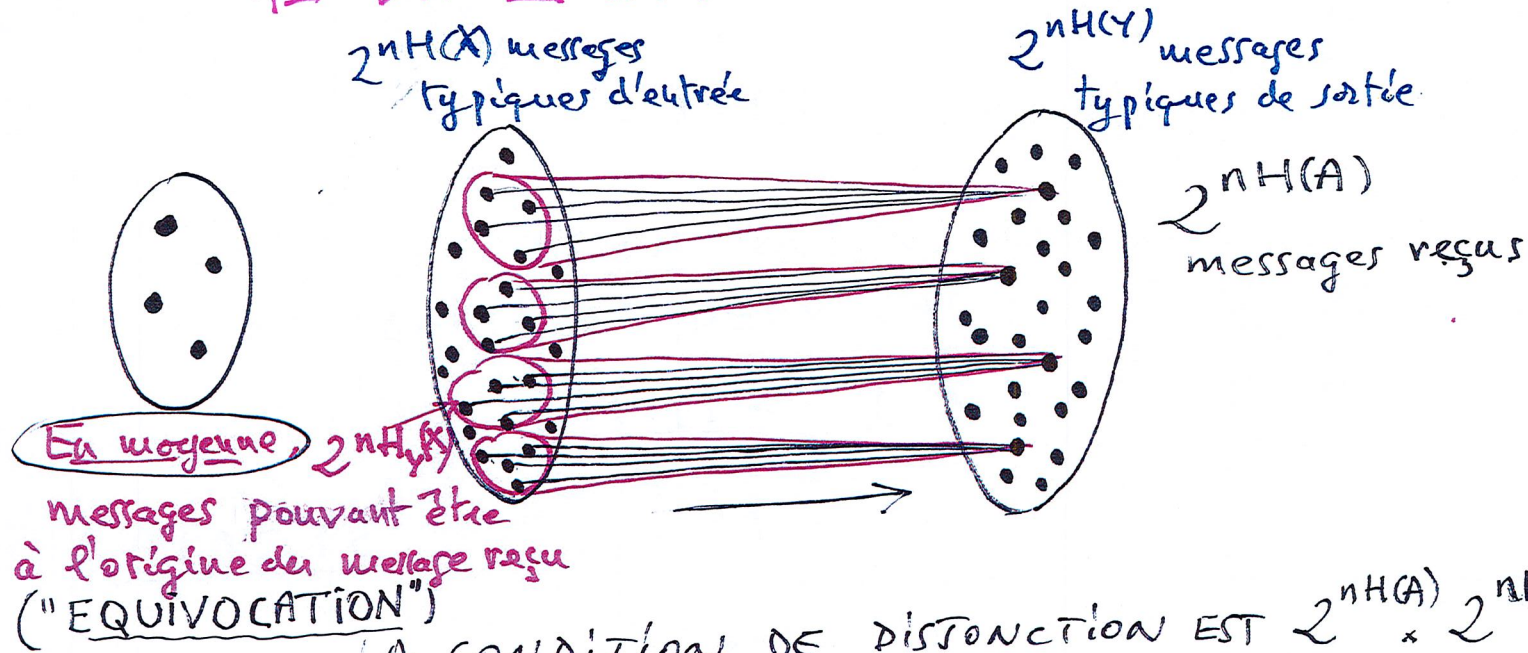 2^nH(X) messages
typiques d'entrée
2^nH(Y) messages
typiques de sortie
2^nH(A)
messages reçus
En moyenne, 2^nH_y(X)
messages pouvant être
à l'origine du message reçu
("EQUIVOCATION")
CONDITION DE DISJONCTION EST 2^nH(A) x 2